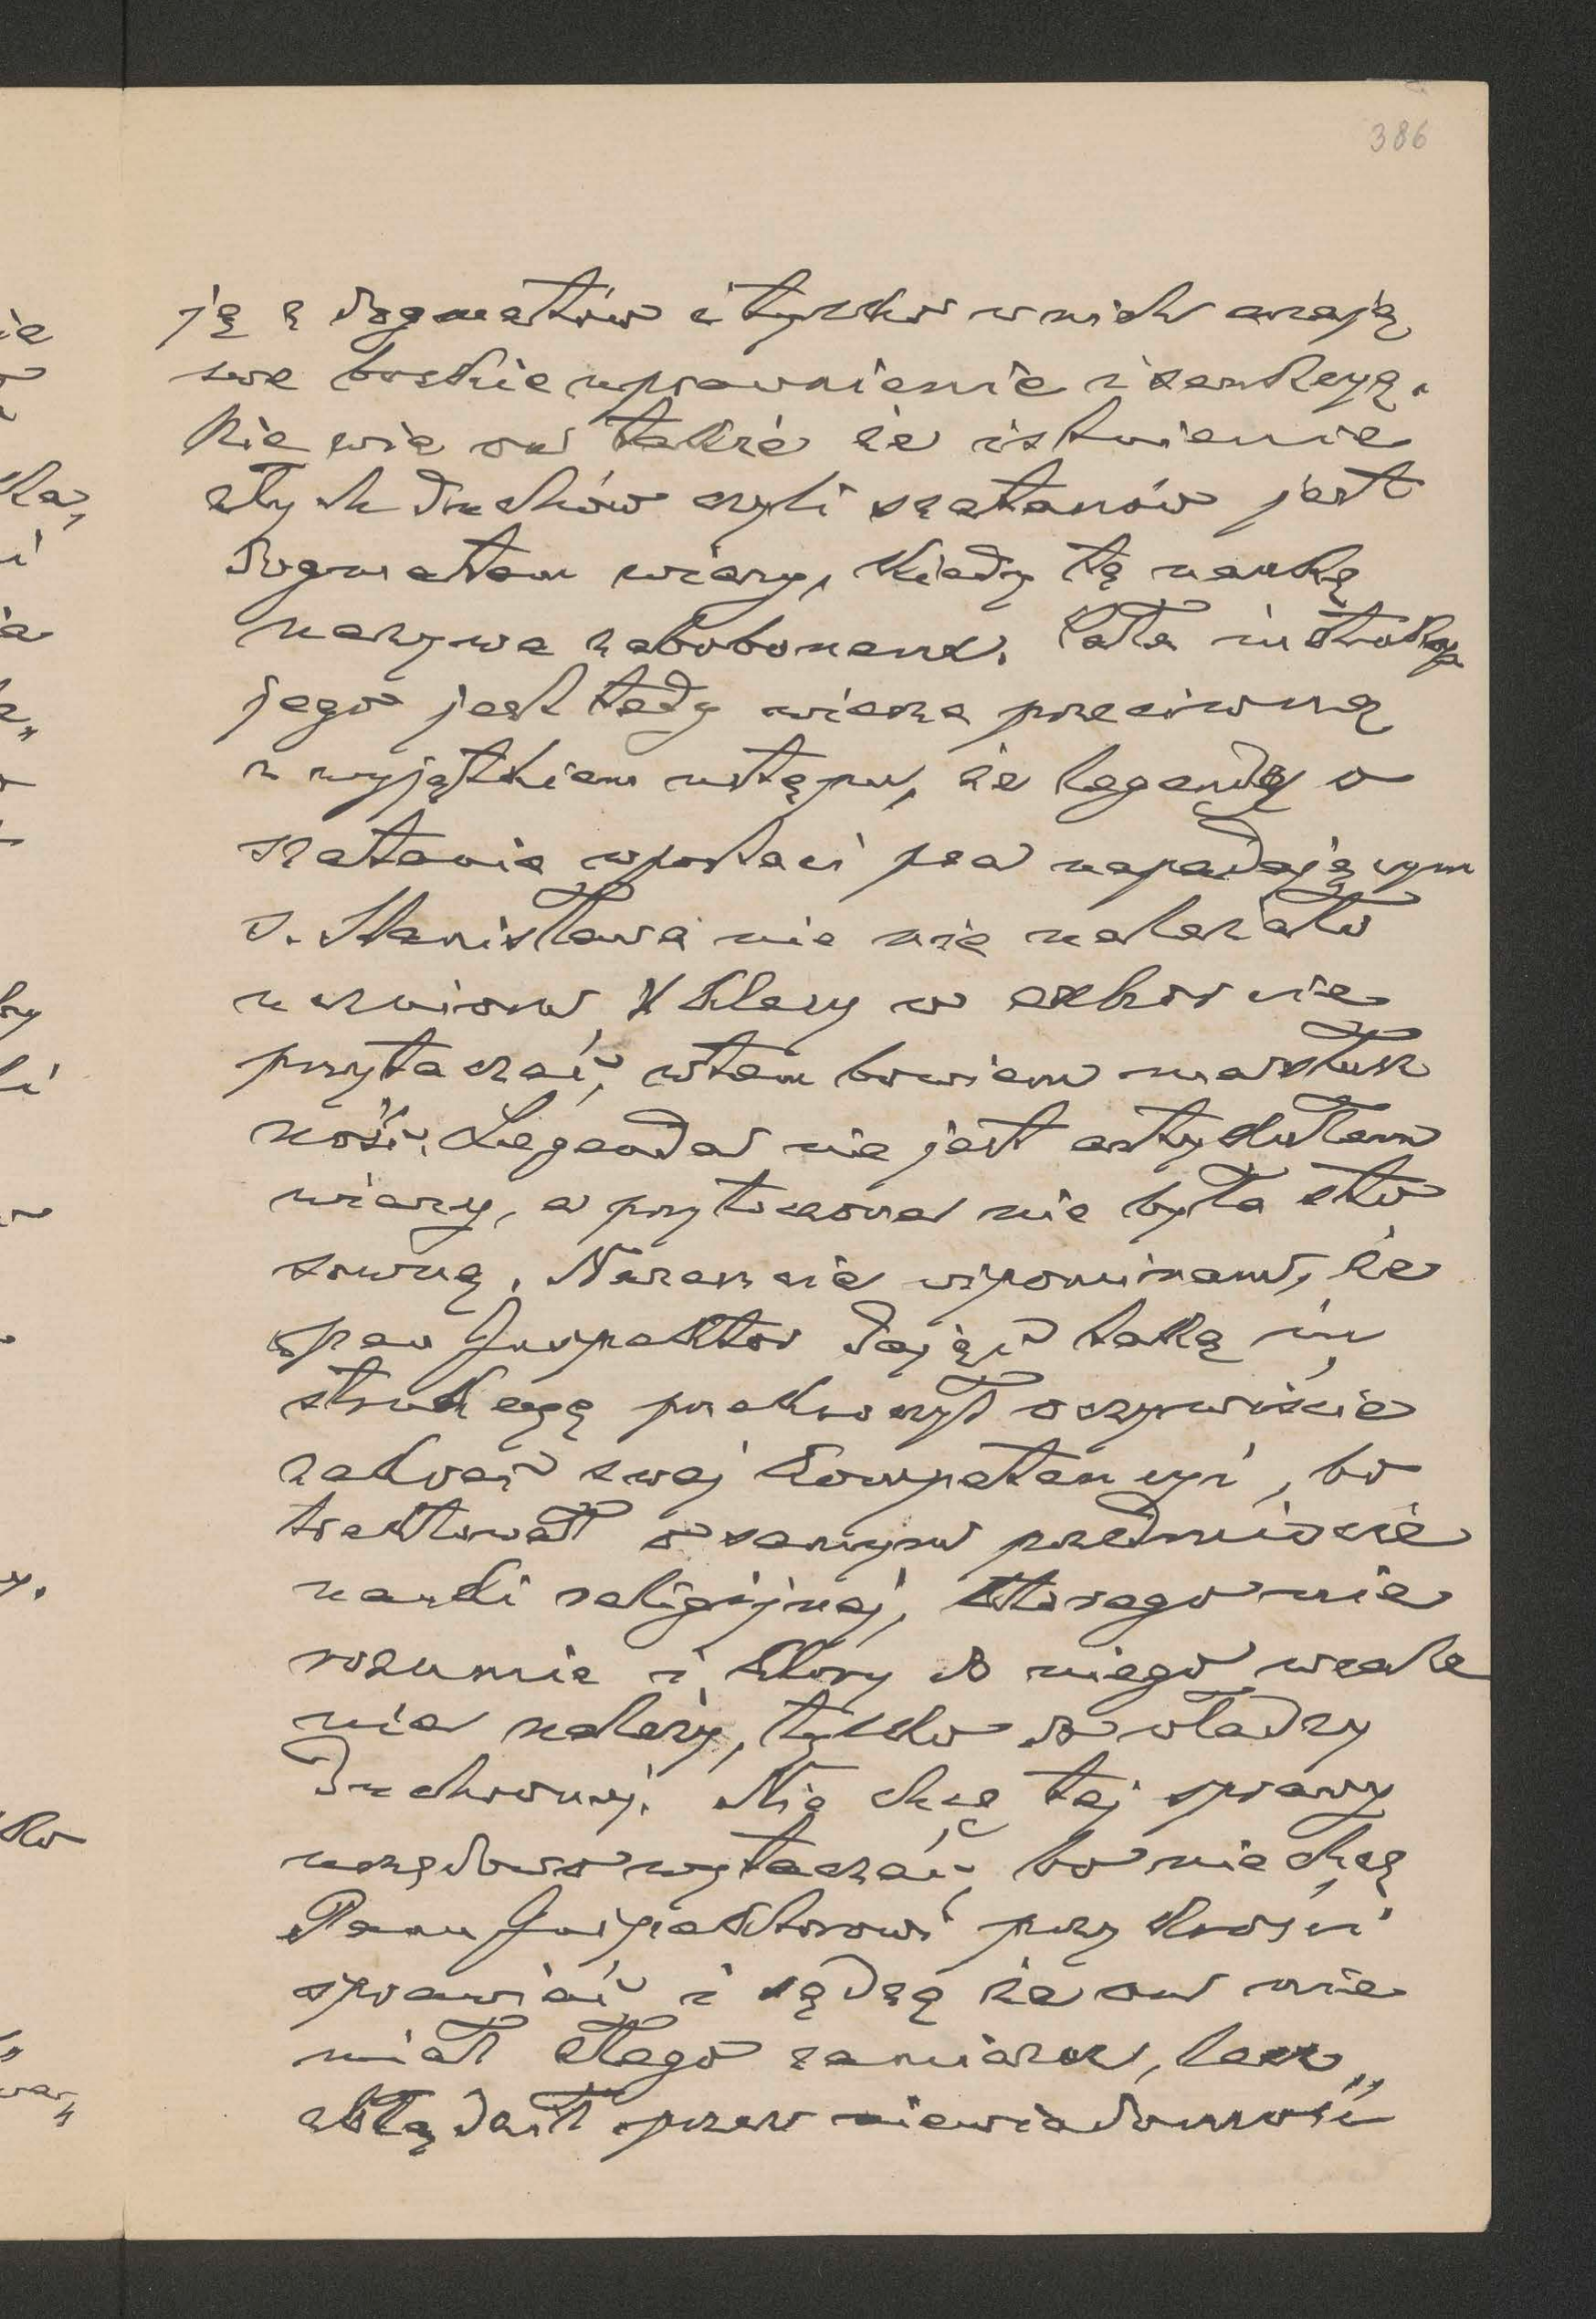 386
ją z dogmatów i tylko w nich mają
swe boskie uprawnienie i sankcyą.
Nie wie on także że istnienie
złych duchów czyli szatanów jest
dogmatem wiary, kiedy tę naukę
nazywa zabobonem. Cała instrukcya
jego jest tedy wierze przeciwną
z wyjątkiem ustępu, że legendy o
szatanie w postaci psa napadającym
s. Stanisława nie należało
uczniom klasy w szkole nie
przytaczać, w tem bowiem ma słusz
ność. Legenda nie jest artykułem
wiary, a przytoczona nie była sto
sowną. Nareszcie wspominam, że
pan Inspektor dając taką in
strukcyę przekroczył oczywiście
zakres swej kompetencyi, bo
traktował o samym przedmiocie
nauki religijnej, którego nie
rozumie i który do niego wcale
nie należy, tylko do władzy
duchownej. Nie chcę tej sprawy
urzędowo wytaczać, bo nie chcę
Panu Inspektorowi przykrości
sprawiać i sądzę że on nie
miał złego zamiaru, lecz
zbłądził przez niewiadomość